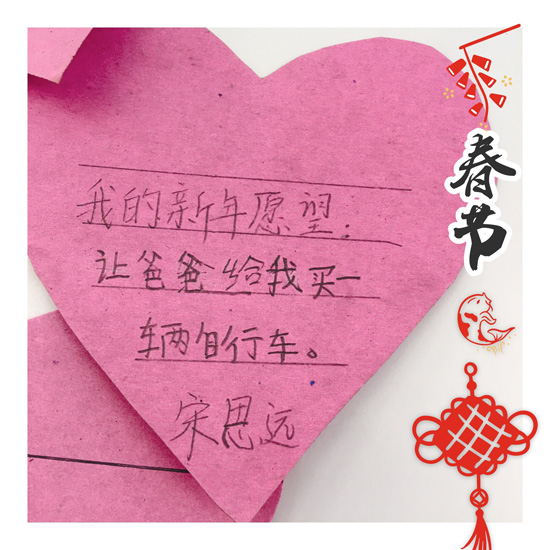 我的新年愿望:
让爸爸给我买一
辆自行车。
宋思远
春节